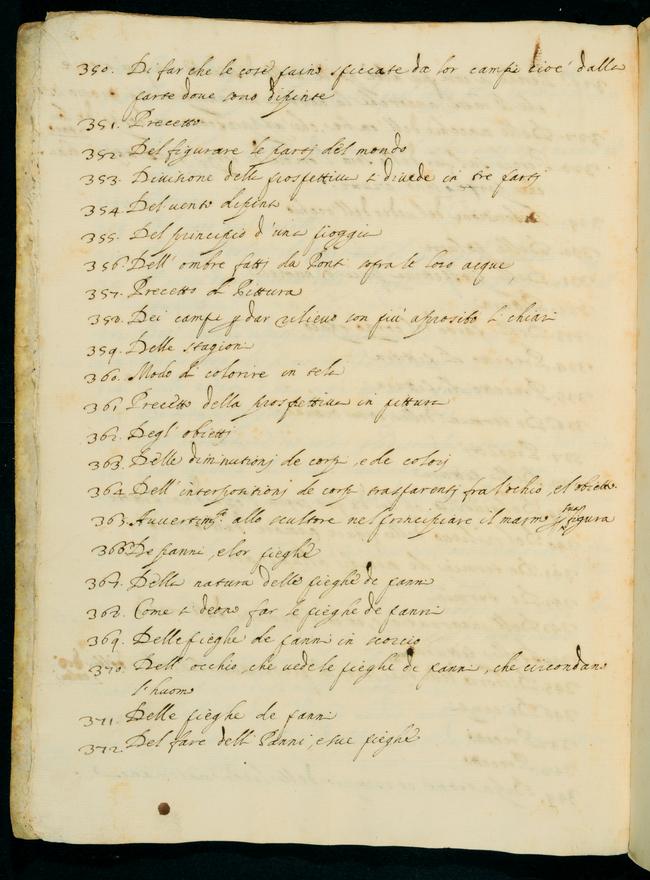 350. Di far che le cose paino spiccate da lor campi cioè dalla
parte doue sono dipinte
351. Precetto
352. Del figurare le parti del mondo
353. Diuisione della prospettiua si diuide in tre parti
354. Del uento dipinto
355. Del principio d'una pioggia
356. Dell' ombre fatti da Ponti sopra le loro acque
357. Precetto di Pittura
358. Dei campi p dar rilieuo con più a proposito li chiari
359. Delle stagioni
360. Modo di colorire in tela
361. Precetto della prospettiua in pittura
362. Degl' obietti
363. Delle diminutioni de corpi, e de colori
364. Dell' interpositioni de corpi trasparenti fra l'ochio, el obietto
365. Auuertimto. allo scultore nel principiare il marmo p sua figura
366. De panni, e lor pieghe
367. Della natura delle pieghe de panni
368. Come si deono far le pieghe de panni
369. Delle pieghe de panni in scorcio
370. Dell' occhio, che uede le pieghe di panni, che circondano
l'huomo
371. Delle pieghe de panni
372. Del fare delli Panni, e sue pieghe